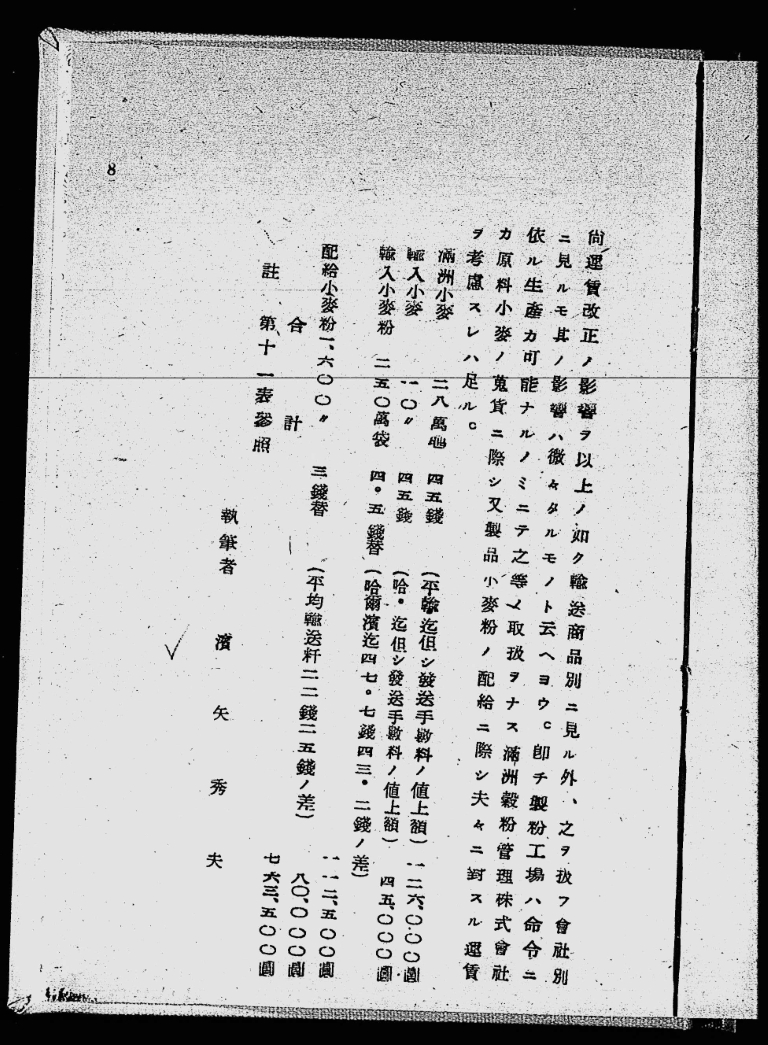 尙運賃改正ノ影響ヲ以上ノ如ク輸送商品別ニ見ル外、之ヲ扱フ會社別
ニ見ルモ其ノ影響ハ微々タルモノト云ヘヨウ。卽チ製粉工場ハ命令ニ
依ル生產カ可能ナルノミニテ之等ノ取扱ヲナス滿洲穀粉管理株式會社
カ原料小麥ノ蒐貨ニ際シ又製品小麥粉ノ配給ニ際シ夫々ニ對スル運賃
ヲ考慮スレハ足ル。
滿洲小麥 二八萬瓲 四五錢 (平輸迄但シ發送手數料ノ値上額) 一二六、〇〇〇圓
輸入小麥 一〇〃 四五錢 (哈・迄但シ發送手數料ノ値上額) 四五、〇〇〇圓
輸入小麥粉 二五〇萬袋 四・五錢替 (哈爾濱迄四七。七錢四三・二錢ノ差) 一一二、五〇〇圓
配給小麥粉 一、六〇〇〃 三錢替 (平均輸送粁二二錢二五錢ノ差) 八〇、〇〇〇圓
合計 七六三、五〇〇圓
註 第十一表參照
執筆者 濱矢秀夫
8